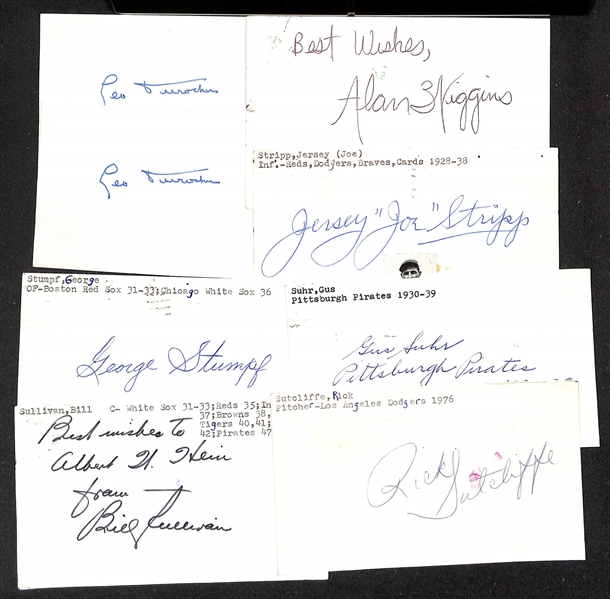 Leo Durocher
Leo Durocher
Best Wishes,
Alan Wiggins
Stripp,Jersey (Joe)
Inf.-Reds,Dodgers,Braves,Cards 1928-38
Jersey "Joe" Stripp
Stumpf,George
OF-Boston Red Sox 31-33;Chicago White Sox 36
George Stumpf
Suhr,Gus
Pittsburgh Pirates 1930-39
Gus Suhr
Pittsburgh Pirates
Sullivan,Bill C- White Sox 31-33;Reds 35;In
37;Browns 38,
Tigers 40,41;
42;Pirates 47
Best wishes to
Albert W. Hein
from
Bill Sullivan
Sutcliffe,Rick
Pitcher-Los Angeles Dodgers 1976
Rick Sutcliffe